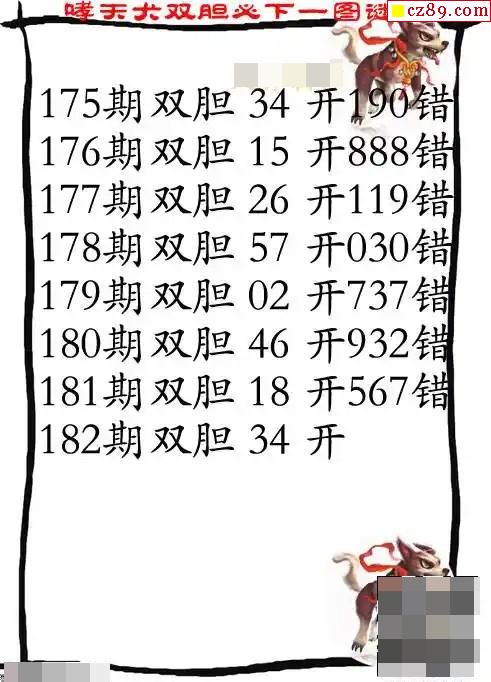 哮天犬双胆必下一图谜
cz89.com
175期双胆 34 开190错
176期双胆 15 开888错
177期双胆 26 开119错
178期双胆 57 开030错
179期双胆 02 开737错
180期双胆 46 开932错
181期双胆 18 开567错
182期双胆 34 开